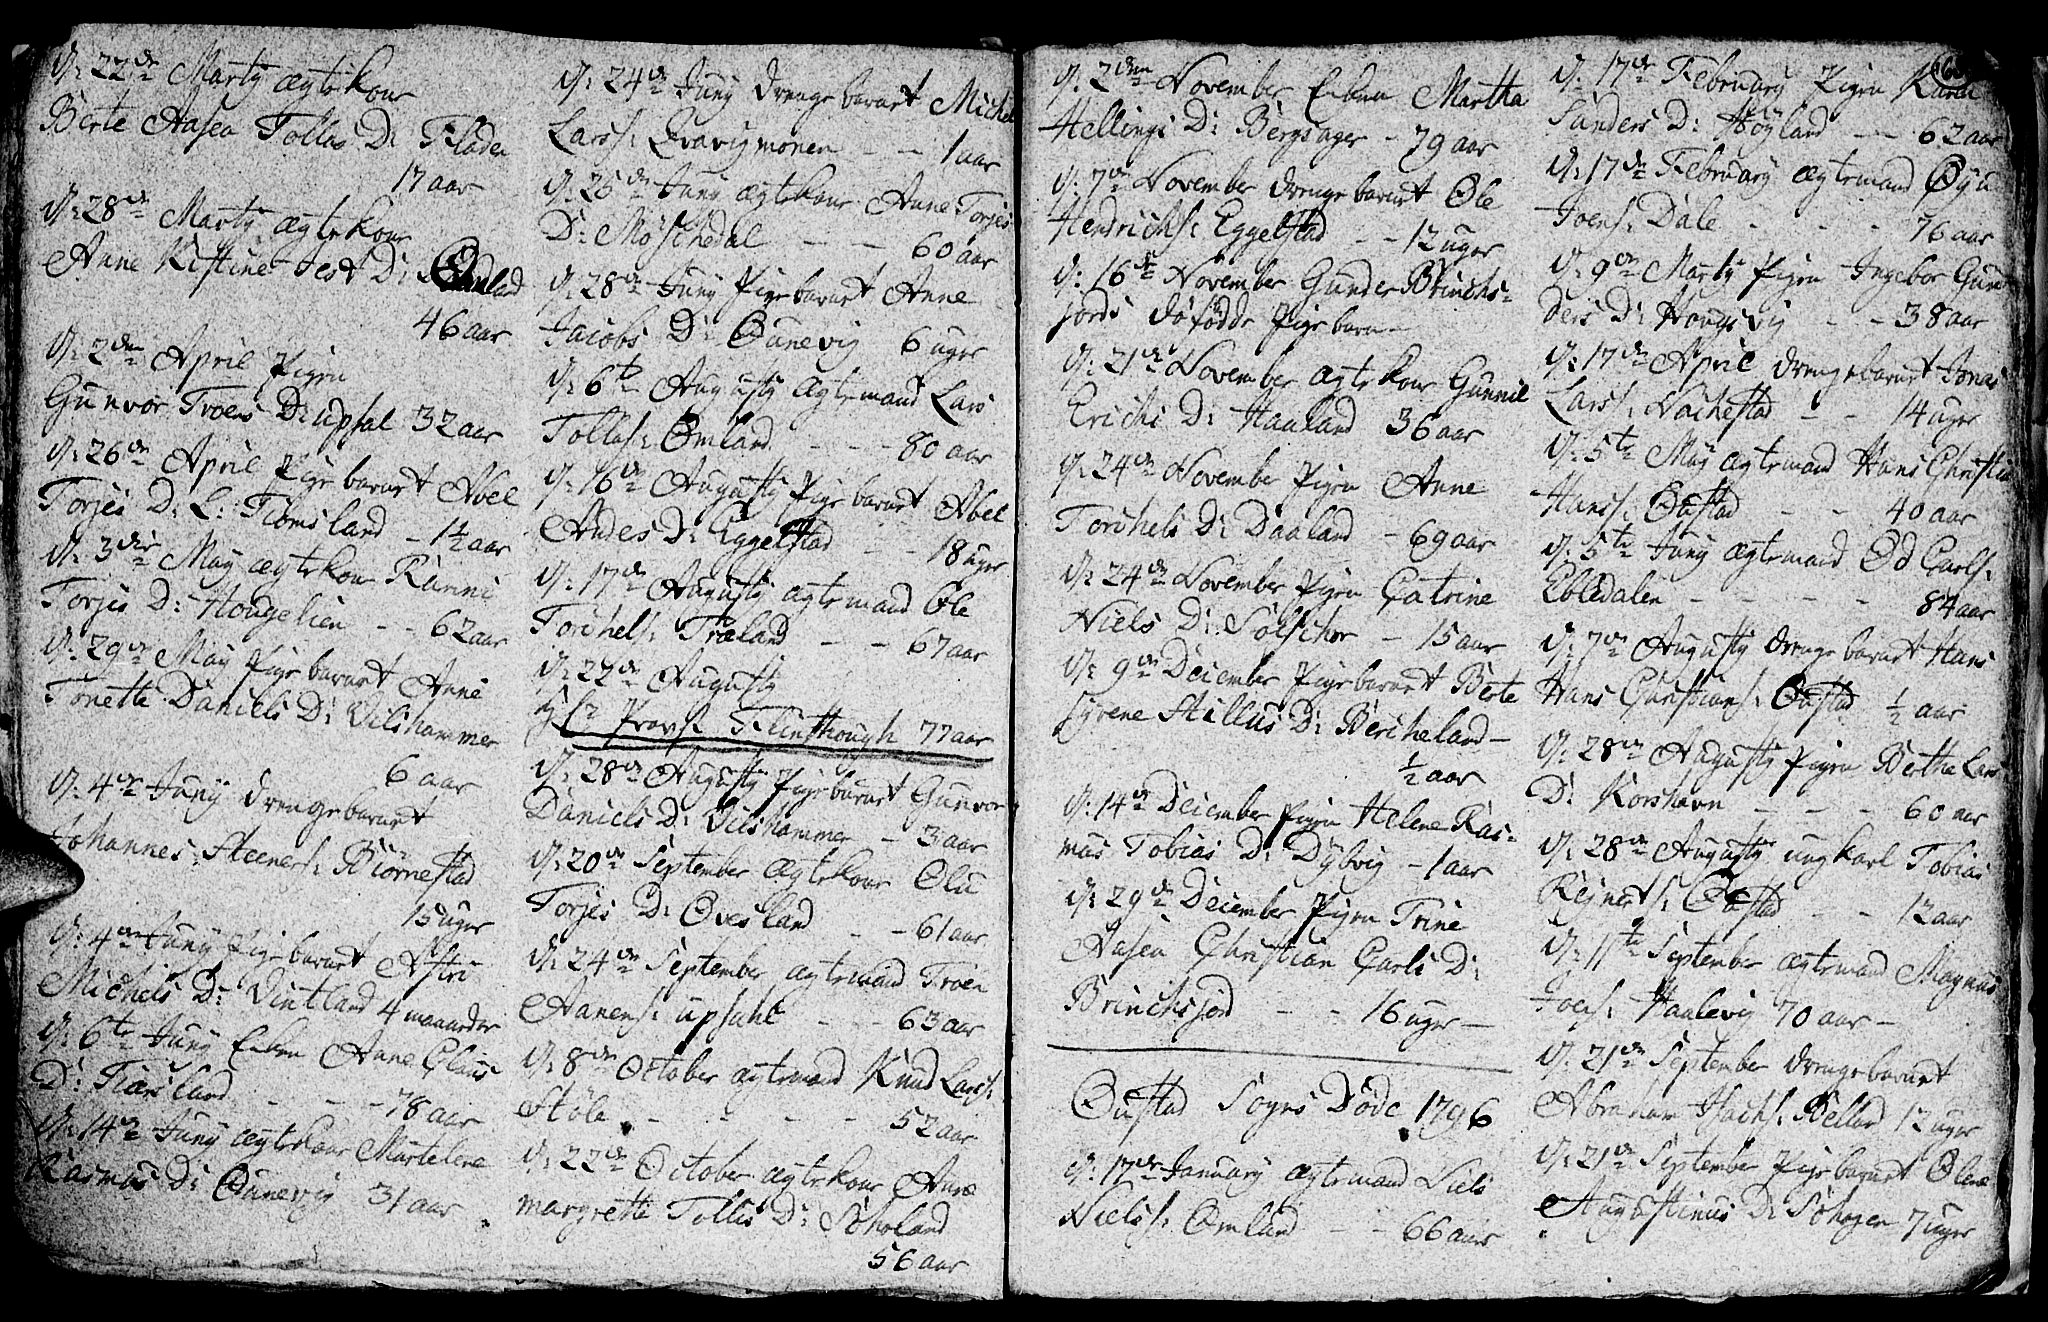 d: 22de Martÿ ægtekone
Berte Aasea Tollas D: Fladen
17 aar
d: 28de Martÿ ægtekone
Anne Kistine Jest D:
46 aar
d: 2den April Pigen
Gunvor Troens D: upsal 32 aar
d: 26de April Pigebarnet Abel
Torjes D: L: Fiomsland - 1½ aar
d: 3die Maÿ ægtekone Karini
Torjes D: Hougelien - - 62 aar
d: 29de Maÿ Pigebarnet Anne
Tonette Daniels D: Vilshammer
6 aar
d: 4de Junÿ drengebarnet
Johannes Steeners: Biörnestad
15 uger
d: 4de Junÿ Pigebarnet Astri
Michels D: Vintland 4 maaneder
d: 6te Junÿ Enken Anne Claus
D: Fiærsland - - - 78 aar
d: 14de Junÿ ægtekone Martelene
Rasmus D: Öunevig 31 aar
d: 24de Junÿ drengebarnet Michel
Lars: Qvavigmonen - - 1 aar
d: 26de Junÿ ægtekone Anne Torjes
D: Möschedal - - 60 aar
d: 28de Junÿ Pigebarnet Anne
Jacobs D: Öunevig 6 uger
d: 6te Augustÿ ægtemand Lars
Tollas: Ömland - - - 80 aar
d: 16de Augustÿ Pigebarnet Abel
Andes D: Eggelstad - - 18 uger
d: 17de Augustÿ ægtemand Ole
Torchels: Træland - - 67 aar
d: 22de Augustÿ
Provst Flinthough 77 aar
d: 28de Augustÿ Pigebarnet Gunvor
Daniels D: Vilshammer - 3 aar
d: 20de September ægtekone Olu
Torjes D:Övesland - - 61 aar
d: 24de September ægtemand Troen
Aanens: upsahl - - - 63 aar
d: 8de October ægtemand Knud Lars:
Stöle - - - - 52 aar
d: 22de October ægtekone Anne
margrette Tollis D: Söholand
56 aar
d: 2den November Enken Martha
Hellings D: Bergsager - 79 aar
d: 7de November drengebarnet Ole
Hendrichs: Eggelstad - - 12 uger
d: 16de November Gunder Brinchs-
jords dödfödde Pigebarn -
d: 21de November ægtekone Gunnil
Erichs D: Haaland 36 aar
d: 24de November Pigen Anne
Torchels D: Daaland - 69 aar
d: 24de November Pigen Catrine
Niels D: Sölschor - 15 aar
d: 9de December Pigebarnet Berte
Syrene Stillus D: Bercheland -
½ aar
d: 14de December Pigen Helene Ras-
mus Tobias D: Dybvig - 1 aar
d: 29de December Pigen Trine
Aasea Christian Carls D:
Brinchsjord - - 16 uger -
Öustad Sogns Döde 1796
d: 17de Januarÿ ægtemand Niels
Niels: Ömland - - 66 aar
d: 17de Februarÿ Pigen Karen
Sanders D: Höyland - - 62 aar
d: 17de Februarÿ ægtemand Öyu
Joens: Dale - - - 76 aar
d: 9de Martÿ Pigen Ingebor Gun
ders D: Hougsvig - - 38 aar
d: 17de April drengebarnet Jonas
Lars: Nachestad - - 14 uger
d: 5te Maÿ ægtemand Hans Christia
Hans: Öustad - - - 40 aar
d: 5te Junÿ ægtemand Od Carls:
Ebledalen - - - - 84 aar
d: 7de Augustÿ drengebarnet Hans
Hans Christians: Öustad ½ aar
d: 28de Augustÿ Pigen Bertha Lars
D: Korshavn - - - 60 aar
d: 28de Augustÿ ungkarl Tobias
Rejnert: Öustad - - 12 aar
d: 11te September ægtemand Magnus
Joens: Haalevig 70 aar -
d: 21de September drengebarnet
Abraham Isachs: Belland 12 uger
d: 21de September Pigebarnet Olene
Augustinus D: Söhagen 7 uger